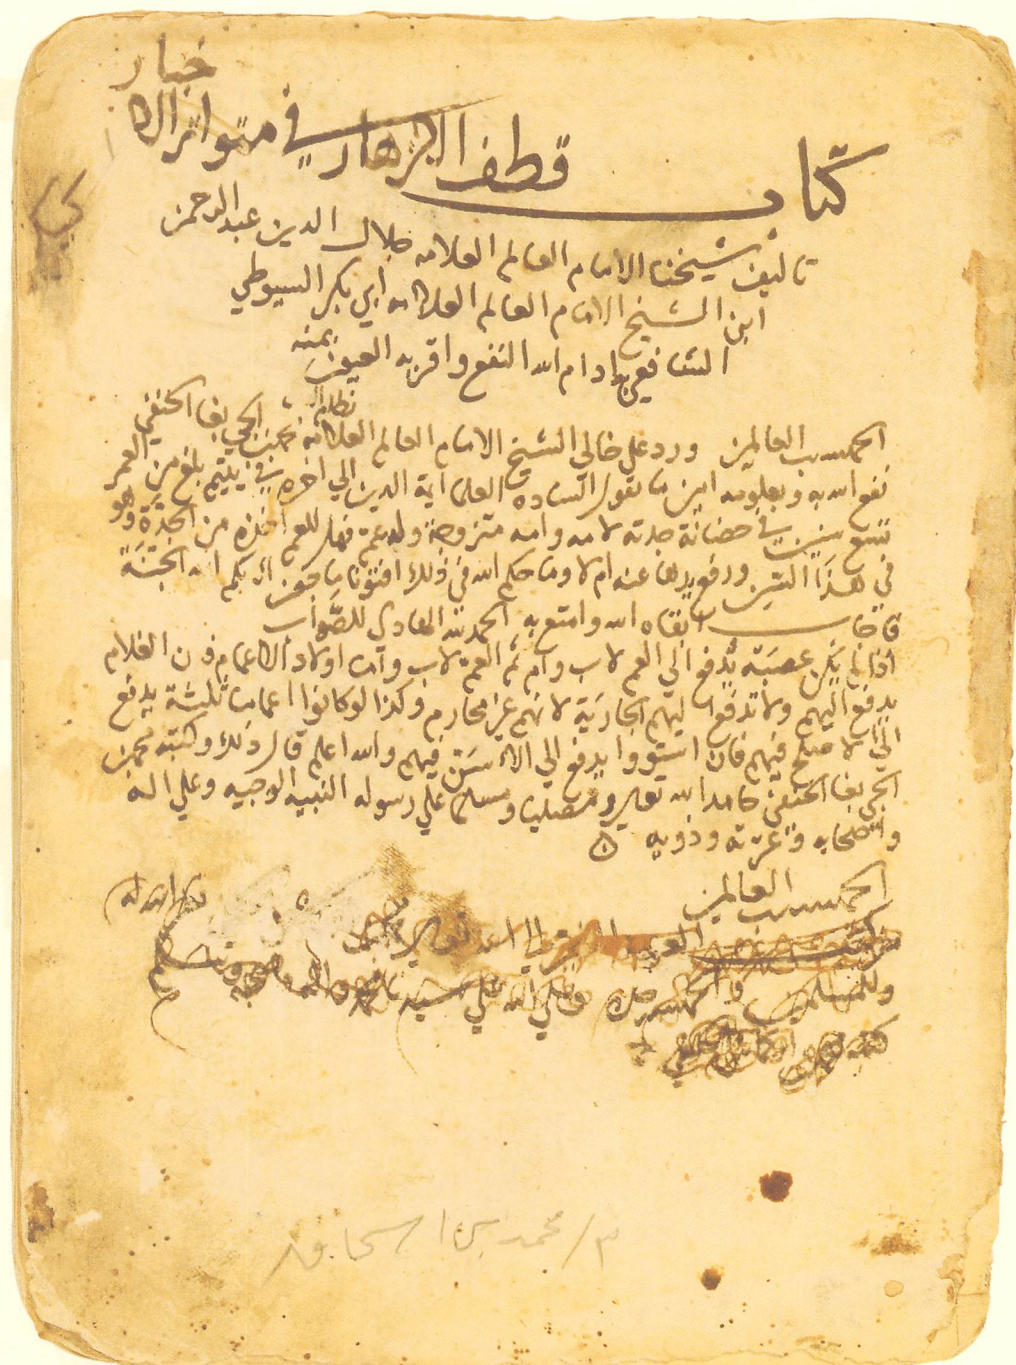 كتاب قطف الازهار في متواتر الا
خبار
تاليف شيخنا الامام العالم العلامه جلال الدين عبد الرحمن
ابن الشيخ الامام العالم العلامه ابي بكر السيوطي
الشافعي ادام الله النفع واقر به العيون بمنه
الحمد لله رب العالمين ورد علي خالي الشيخ الامام العالم العلامه نظام محمد الجي بغا الحنفي
نفع الله به وبعلومه امين ما تقول الساده العلما ايمة الدين الي اخره في يتيم بلغ من العمر
سبع سنين في حضانة جدته لامه وامه متزوجة وله عم فهل للعم اخذه من الجدة وهو
في هذا السن ورفع يدها عنه ام لا وما حكم الله في ذلك افتونا ماجورين اثابكم الله الجنة
فاجاب ابقاه الله وامتع به الحمد لله الهادي للصواب
اذا لم يكن عصبة يدفع الي العم لاب وام ثم العم لاب واما اولاد الاعمام فان الغلام
يدفع اليهم ولا تدفع اليهم الجارية لانهم غير محارم وكذا لو كانوا اعماما ثلثة يدفع
الي الاصلح فيهم فان استووا يدفع الي الاسن فيهم والله اعلم قال ذلك وكتبه محمد بن
الجي بغا الحنفي حامدا لله تعالي ومصليا ومسلما علي رسوله النبيه الوجيه وعلي اله
واصحابه وعترته وذويه
الحمد لله رب العالمين
العبد الفقير الي الله تعالي غفر الله له
وللمسلمين والحمد لله وحده وصلي الله علي سيدنا محمد واله وصحبه وسلم
كتبه
٣/ محمد بن اسحاق